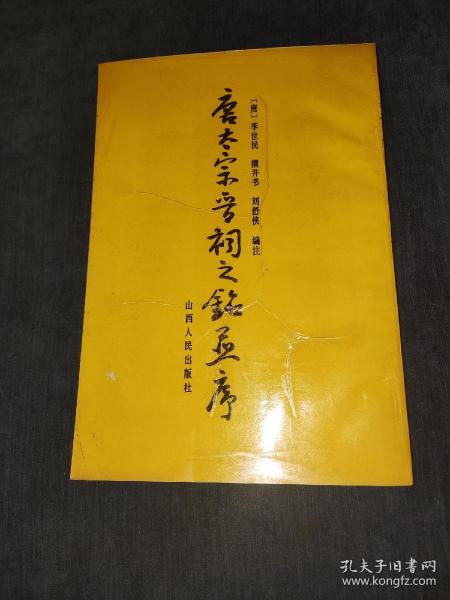 [唐] 李世民 撰并书 刘舒侠 编注
唐太宗晋祠之銘並序
山西人民出版社
孔夫子旧书网
www.kongfz.com